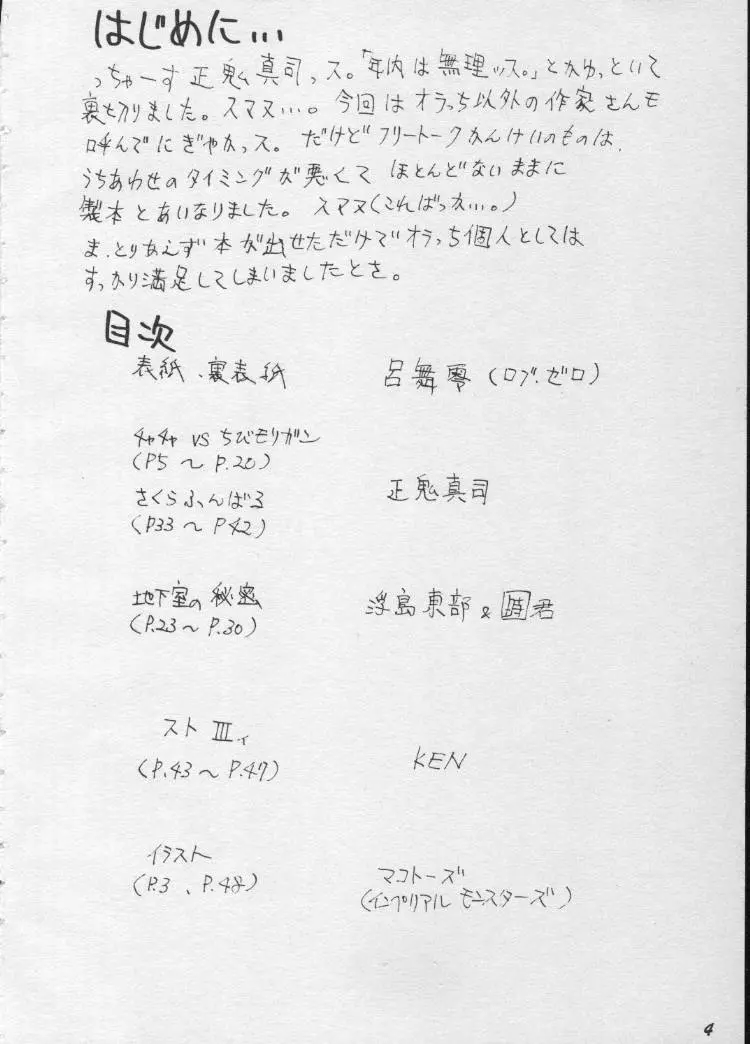 はじめに…
っちゃーす正鬼真司っス。「年内は無理ッス。」とかゆっといて
裏を切りました。スマヌ…。今回はオラっち以外の作家さんも
呼んでにぎやかっス。だけどフリートークかんけいのものは、
うちあわせのタイミングが悪くて ほとんどないままに
製本とあいなりました。スマヌ(こればっか…。)
ま、とりあえず本が出せただけでオラっち個人としては
すっかり満足してしまいましたとさ。
目次
表紙、裏表紙 呂舞零(ロブ・ゼロ)
チャチャ VS ちびモリガン
(P5 〜 P.20)
さくらふんばる 正鬼真司
(P33 〜 P42)
地下室の秘密 浮島東部 & 時君
(P.23 〜 P.30)
スト III
(P.43 〜 P.47) KEN
イラスト
(P.3 、P.48) マコトーズ
(インペリアル モンスターズ)
4